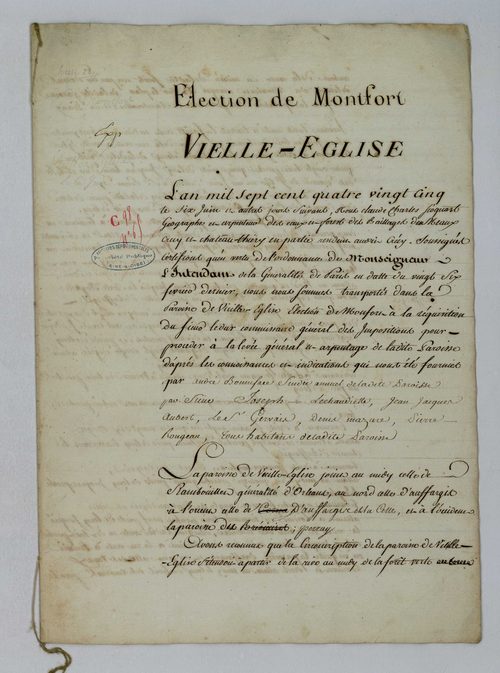 Election de Montfort
VIELLE-EGLISE
Lan mil sept cent quatre vingt cinq
le six juin et autres jours suivant, Nous claude Charles
Geographe et arpenteur des eaux et forest des Bailliages de Meaux
Crécy et chateau-thiery en partie
certifions qu'en vertu de l'ordonnance de Monseigneur
L'Intendant de la Généralité de Paris en datte du vingt six
fevrier dernier, nous nous sommes transportés dans la
Paroisse de Vieille-Eglise Election de Monfort à la requisition
du commissaire général des Impositions pour
proceder à la levée général et arpentage de ladite Paroisse
d'après les connoissances et indications qui nous été fournies
par André Boniface Sindic annuel de ladite Paroisse
par Joseph Jean Jacques
Aubert, le Sr. Gervais, Denis mazure, Pierre
Rougeau, tous habitans de ladite Paroisse
La paroisse de Vieille-Eglise joint au midy celle de
Rambouillet généralité d'Orleans, au nord celle d'auffargis
à l'orient celle de d'auffargis et la Celle, et à l'occident
la paroisse des
Avons reconnu que la Circonscription de la paroisse de Vieille-
-Eglise s'etendoit a partir de la rive au midy de la forêt verte